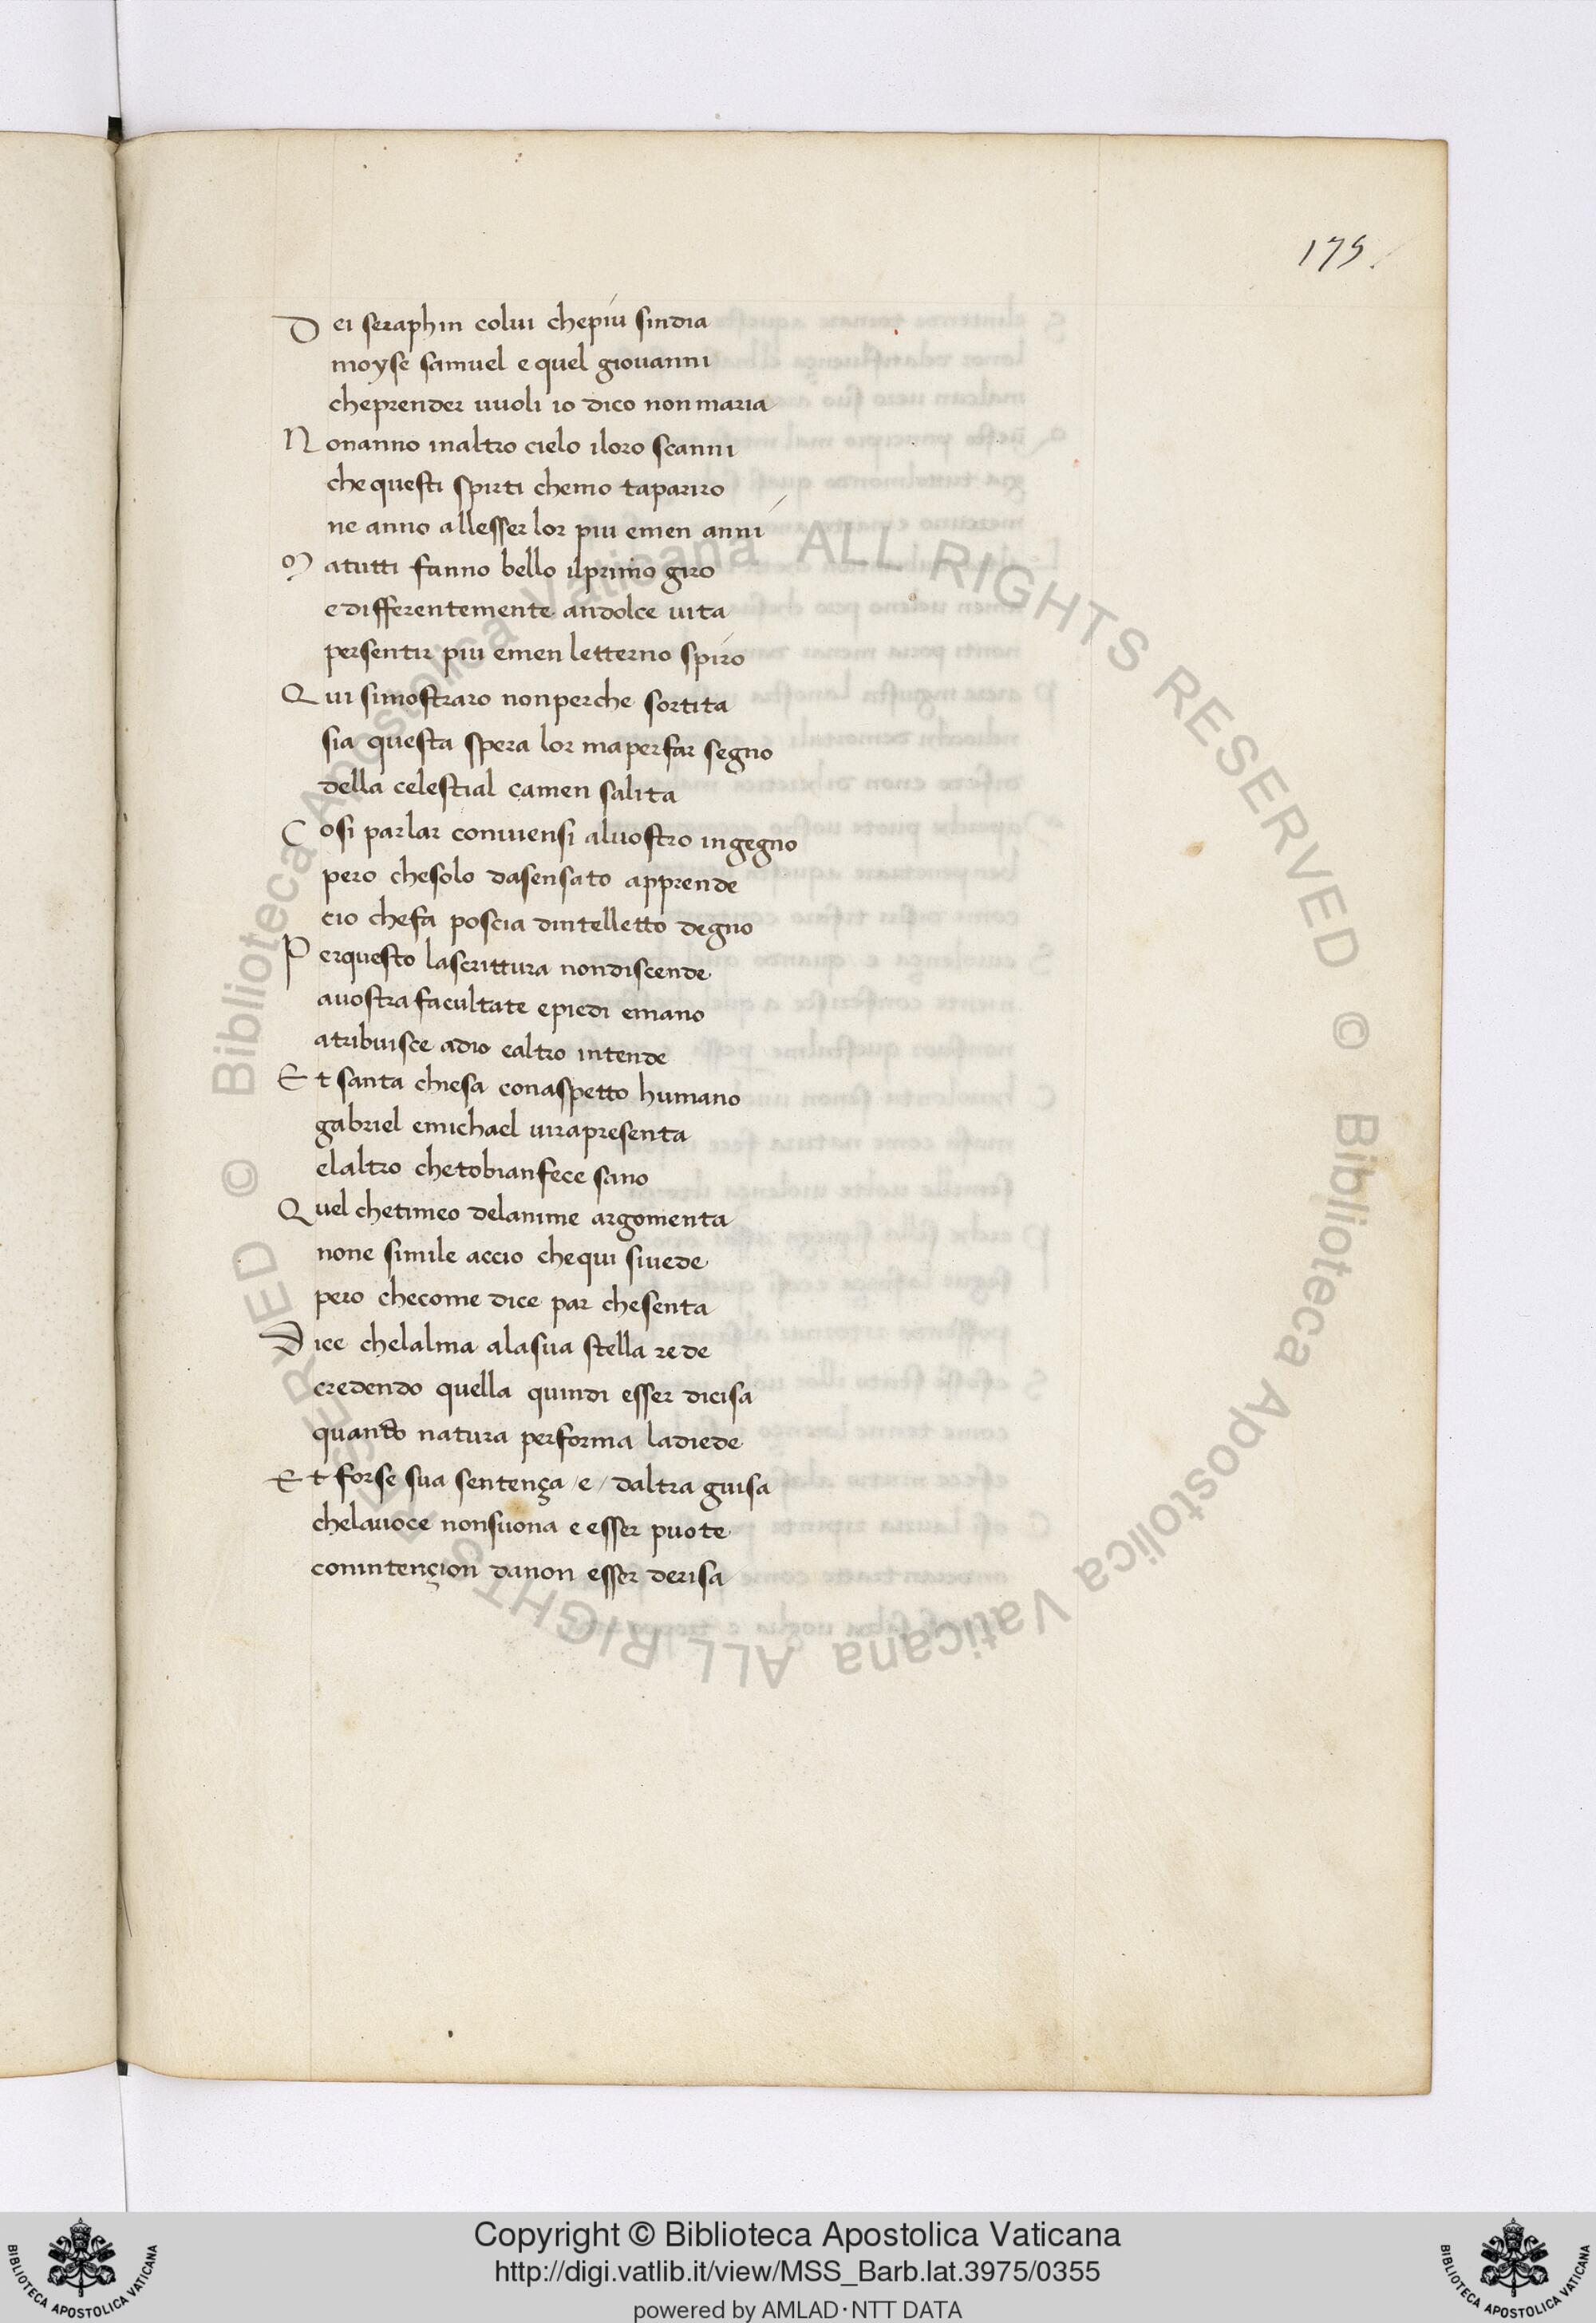 175.
Dei seraphin colui chepiu sindia
moyse samuel e quel giouanni
cheprender uuoli io dico nonmaria
Nonanno inaltro cielo iloro scanni
che questi spirti chemo tapariro
ne anno allesser lor piu emen anni
Matutti fanno bello ilprimo giro
edifferentemente andolce uita
persentir piu emen letterno spiro
Qui simostraro nonperche sortita
sia questa spera lor maperfar segno
della celestial camen salita
Cosi parlar conuiensi aluostro ingegno
pero chesolo dasensato apprende
cio chefa poscia dintelletto degno
Perquesto lascrittura nondiscende
auostra facultate epiedi emano
atribuisce adio ealtro intende
Et santa chiesa conaspetto humano
gabriel emichael uirapresenta
elaltro chetobianfece sano
Quel chetimeo delanime argomenta
none simile accio chequi siuede
pero checome dice par chesenta
Dice chelalma alasua stella rede
credendo quella quindi esser dicisa
quando natura performa ladiede
Et forse sua sentença /e/ daltra guisa
chelauoce nonsuona e esser puote
conintençion danon esser derisa
© Biblioteca Apostolica Vaticana ALL RIGHTS RESERVED
© Biblioteca Apostolica Vaticana ALL RIGHTS RESERVED
Copyright © Biblioteca Apostolica Vaticana
http://digi.vatlib.it/view/MSS_Barb.lat.3975/0355
powered by AMLAD·NTT DATA
BIBLIOTECA APOSTOLICA VATICANA
BIBLIOTECA APOSTOLICA VATICANA